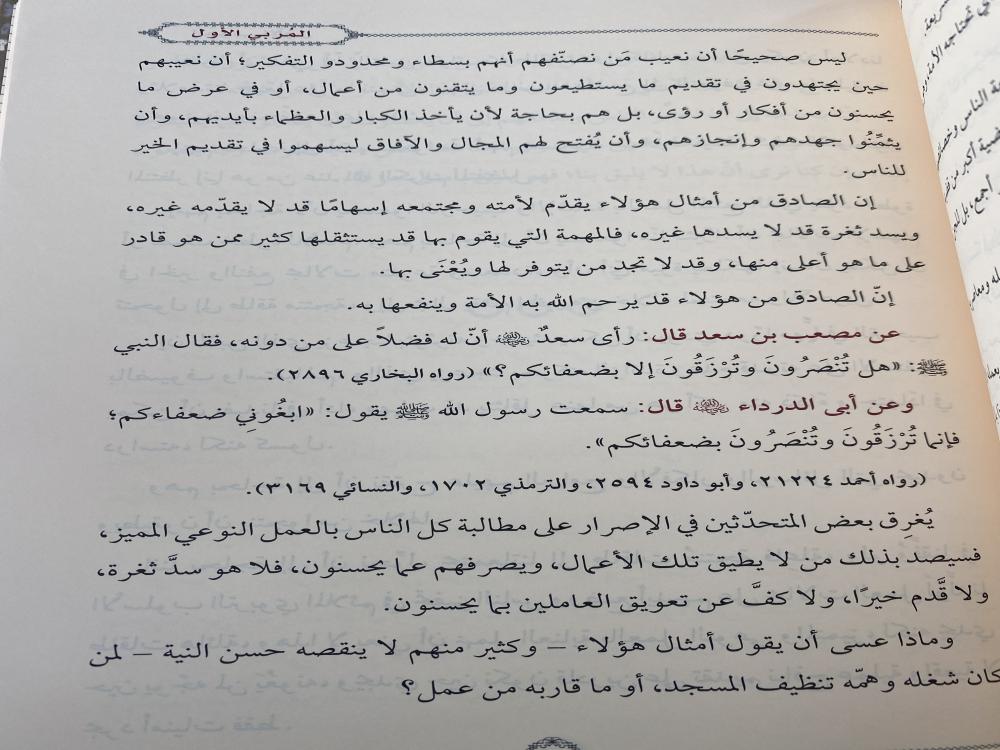 المربي الأول
ليس صحيحًا أن نعيب مَن نصنّفهم أنهم بسطاء ومحدودو التفكير؛ أن نعيبهم
حين يجتهدون في تقديم ما يستطيعون وما يتقنون من أعمال، أو في عرض ما
يحسنون من أفكار أو رؤى، بل هم بحاجة لأن يأخذ الكبار والعظماء بأيديهم، وأن
يثمِّنُوا جهدهم وإنجازهم، وأن يُفتح لهم المجال والآفاق ليسهموا في تقديم الخير
للناس.
إن الصادق من أمثال هؤلاء يقدّم لأمته ومجتمعه إسهامًا قد لا يقدّمه غيره،
ويسد ثغرة قد لا يسدها غيره، فالمهمة التي يقوم بها قد يستثقلها كثير ممن هو قادر
على ما هو أعلى منها، وقد لا تجد من يتوفر لها ويُعْنَى بها.
إنّ الصادق من هؤلاء قد يرحم الله به الأمة وينفعها به.
عن مصعب بن سعد قال: رأى سعدٌ رضي الله عنه أنّ له فضلاً على من دونه، فقال النبي
ﷺ: «هل تُنْصَرُونَ وتُرْزَقُونَ إلا بضعفائكم؟» (رواه البخاري ٢٨٩٦).
وعن أبى الدرداء رضي الله عنه قال: سمعت رسول الله ﷺ يقول: «ابغُونِي ضعفاءكم؛
فإنما تُرْزَقُونَ وتُنْصَرُونَ بضعفائكم».
(رواه أحمد ٢١٢٢٤، وأبو داود ٢٥٩٤، والترمذي ١٧٠٢، والنسائي ٣١٦٩).
يُغرِق بعض المتحدّثين في الإصرار على مطالبة كل الناس بالعمل النوعي المميز،
فسيصد بذلك من لا يطيق تلك الأعمال، ويصرفهم عما يحسنون، فلا هو سدَّ ثغرة،
ولا قَّدم خيرًا، ولا كفَّ عن تعويق العاملين بما يحسنون.
وماذا عسى أن يقول أمثال هؤلاء – وكثير منهم لا ينقصه حسن النية – لمن
كان شغله وهمّه تنظيف المسجد، أو ما قاربه من عمل؟